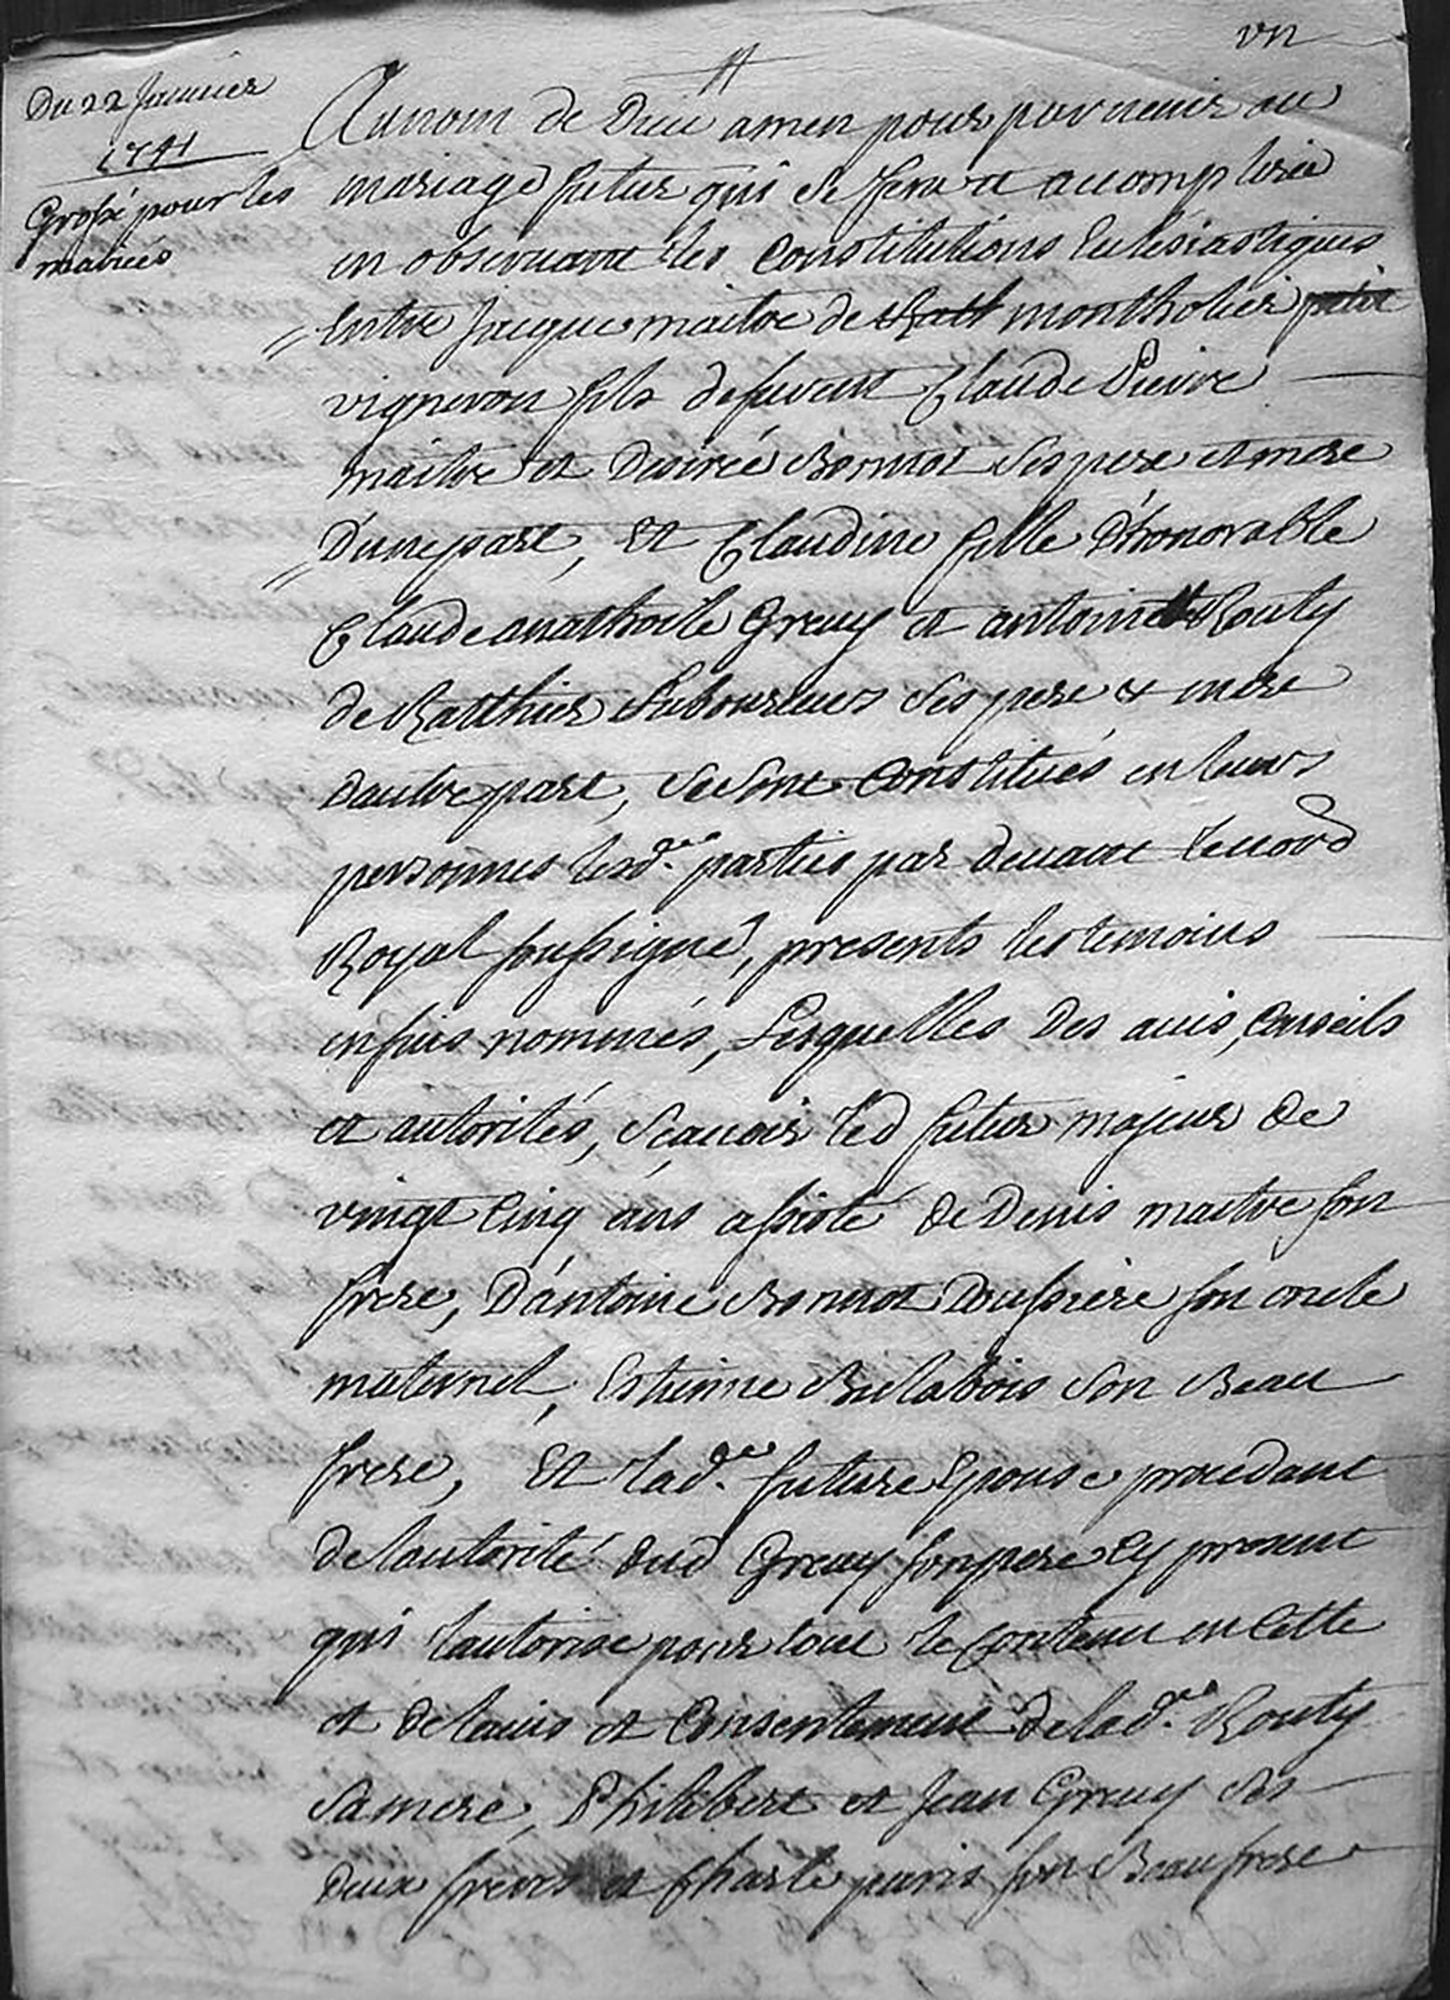 vn
Du 22 Janvier
1741
Grossé pour les
mariés
Au nom de Dieu amen pour parvenir au
mariage futur qui se fera et accomplira
en observant les Constitutions Eclesiastiques
Entre Jacque maitre de Montholier
vigneron fils defeunt Claude Pierre
maitre et Desirée Bonnot ses pere et mere
D'une part, Et Claudine fille D'honorable
Claude anathoile Greuy et antoinette Routy
de Ratthier Laboureurs ses pere & mere
Dautre part, se sont Constitués en leurs
personnes lesd. parties par devant le no.re
Royal soussigné, presents les temoins
enfuis nommés, Lesquelles Des avis, Conseils
et autorités, Scavoir led futur majeur De
vingt Cinq ans assisté de Denis maitre son
frere, D'antoine Bonnot Doussiere son oncle
maternel, Estienne Bulabois son Beau
frere, Et lad.e future Epouse procedant
De lautorité dud Greuy son pere Cy present
qui lautorise pour tout le Contenu en Cette
et de lavis et Consentement de lad.e Routy
Sa mere, Philibert et Jean Greuy ses
deux freres et Charle paris son Beaufrere